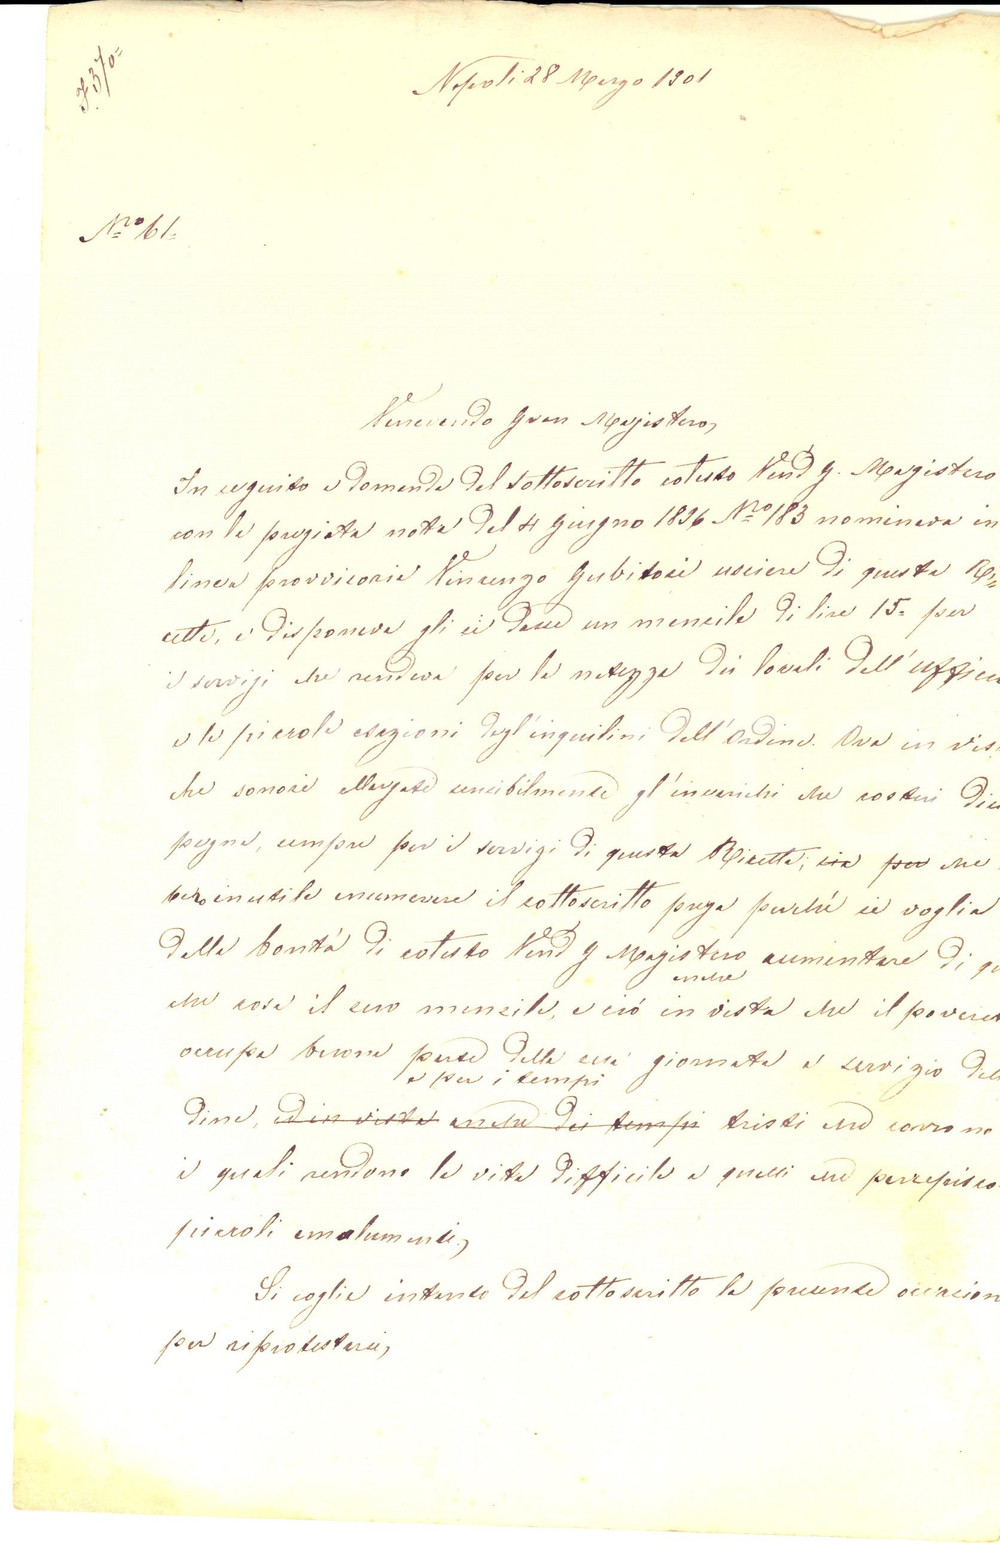 F. 370=
Napoli 28 Marzo 1901
Nro 61=
Venerando Gran Magistero,
In seguito a domanda del sottoscritto cotesto Vendo G. Magistero
con la pregiata nota del 4 Giugno 1896 Nro 183 nominava in
linea provvisoria Vincenzo Gubitosi usciere di questa Ri=
cetta, e disponeva gli si dasse un mensile di lire 15= per
i servigi che rendeva per la netezza dei locali dell'uffici
e le piccole esazioni degl'inquilini dell'Ordine. Ora in vis
che sonosi allargate sensibilmente gl'incarichi che costui dis
pegna, sempre per i servizi di questa Ricetta, sia per che
inutile enumerare il sottoscritto prega perché si voglia
dalla bontà di cotesto Vendo G Magistero aumentare di qu
che cosa il suo mensile, e ciò anche in vista che il poveret
occupa buona parte della sua giornata a servizio dell
dine, ed in vista anche dei tempi e per i tempi tristi che corrono
i quali rendono la vita difficile a quelli che percepisco
piccoli emolumenti,
Si coglie intanto dal sottoscritto la presente occasion
per riprotestarsi,